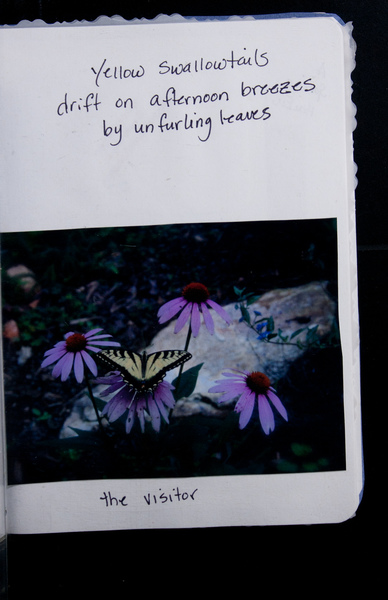 Yellow Swallowtails
drift on afternoon breezes
by unfurling leaves
the visitor